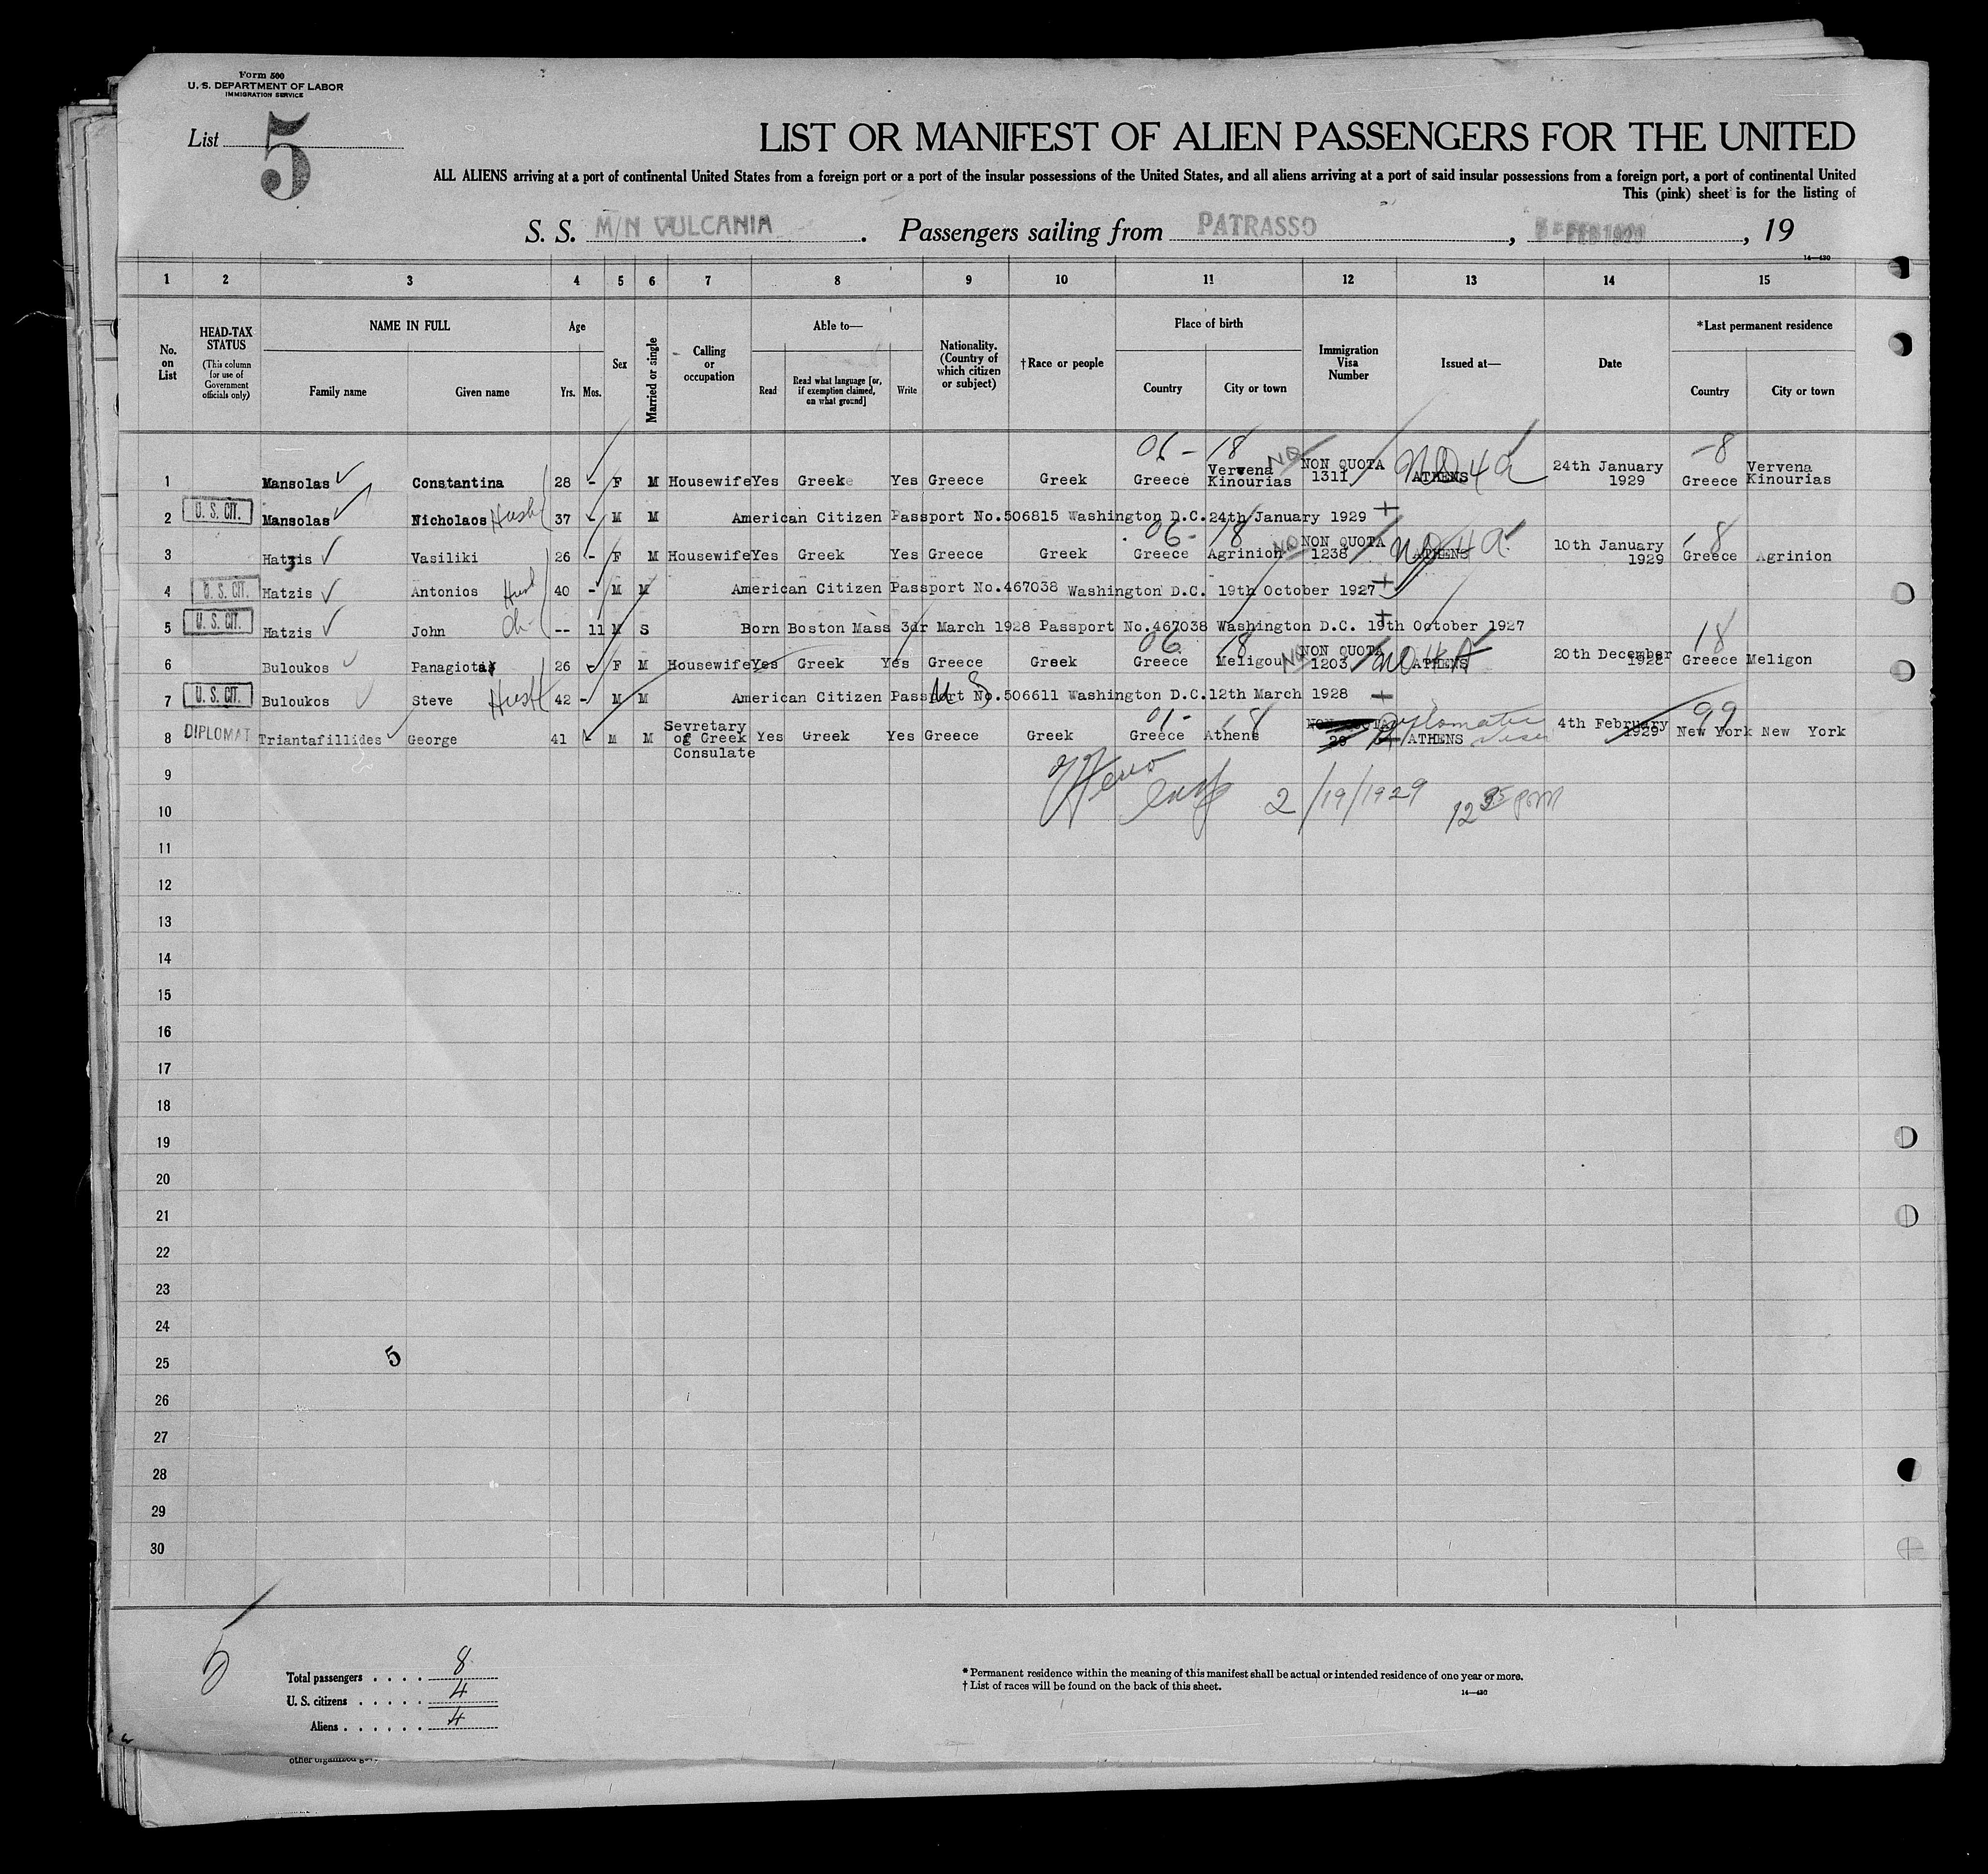 Form 500
U. S. DEPARTMENT OF LABOR
IMMIGRATION SERVICE
List 5
LIST OR MANIFEST OF ALIEN PASSENGERS FOR THE UNITED
ALL ALIENS arriving at a port of continental United States from a foreign port or a port of the insular possessions of the United States, and all aliens arriving at a port of said insular possessions from a foreign port, a port of continental United
This (pink) sheet is for the listing of
S. S. M/N VULCANIA. Passengers sailing from PATRASSO, FEB 1929, 19
14—430
1 2 3 4 5 6 7 8 9 10 11 12 13 14 15
No. on List
HEAD-TAX STATUS (This column for use of Government officials only)
NAME IN FULL
Family name Given name
Age
Yrs. Mos.
Sex
Married or single
Calling or occupation
Able to—
Read Read what language [or, if exemption claimed, on what ground] Write
Nationality. (Country of which citizen or subject)
†Race or people
Place of birth
Country City or town
Immigration Visa Number
Issued at—
Date
*Last permanent residence
Country City or town
06 - 18 NQ NQ 4a -8
1 Mansolas Constantina 28 - F M Housewife Yes Greek Yes Greece Greek Greece Vervena Kinourias NON QUOTA 1311 ATHENS 24th January 1929 Greece Vervena Kinourias
2 U. S. CIT. Mansolas Nicholaos Husb 37 - M M American Citizen Passport No.506815 Washington D.C.24th January 1929
06 - 18 NQ NQ 4a 8
3 Hatzis Vasiliki 26 - F M Housewife Yes Greek Yes Greece Greek Greece Agrinion NON QUOTA 1238 ATHENS 10th January 1929 Greece Agrinion
4 U. S. CIT. Hatzis Antonios Husb 40 - M M American Citizen Passport No.467038 Washington D.C. 19th October 1927
5 U. S. CIT. Hatzis John Ch -- 11 M S Born Boston Mass 3dr March 1928 Passport No.467038 Washington D.C. 19th October 1927
06 18 NQ NQ 4A 18
6 Buloukos Panagiota 26 - F M Housewife Yes Greek Yes Greece Greek Greece Meligou NON QUOTA 1203 ATHENS 20th December 1928 Greece Meligon
7 U. S. CIT. Buloukos Steve Husb 42 - M M American Citizen Passport No.506611 Washington D.C.12th March 1928
01 - 18 Diplomatic Visa 99
8 DIPLOMAT Triantafillides George 41 M M Sevretary of Greek Consulate Yes Greek Yes Greece Greek Greece Athene ATHENS 4th February 1929 New York New York
9
10 2/19/1929 12 35 pm
11
12
13
14
15
16
17
18
19
20
21
22
23
24
25 5
26
27
28
29
30
5
Total passengers . . . . 8
U. S. citizens . . . . . 4
Aliens . . . . . . 4
*Permanent residence within the meaning of this manifest shall be actual or intended residence of one year or more.
†List of races will be found on the back of this sheet.
14—430